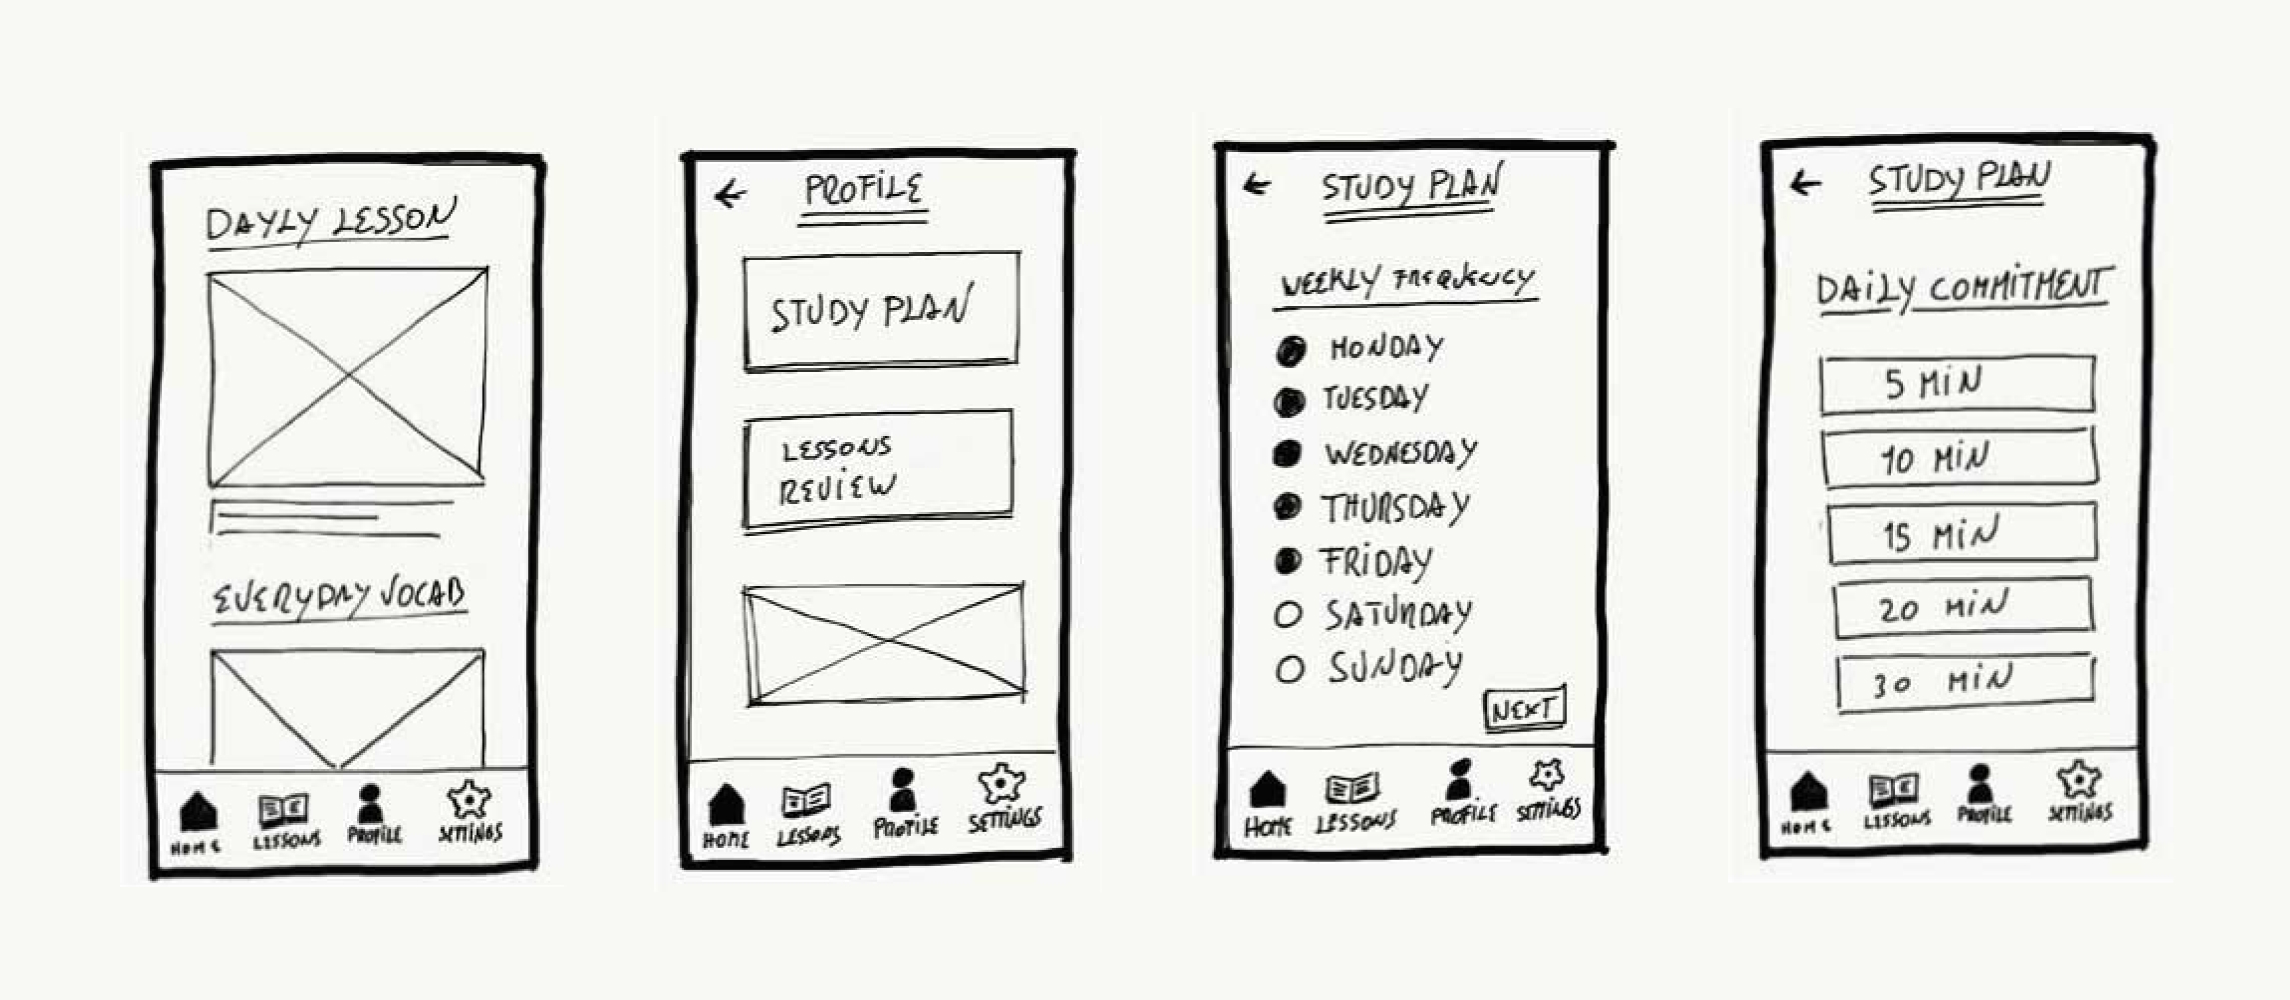 DAYLY LESSON
EVERYDAY VOCAB
HOME LESSONS PROFILE SETTINGS
PROFILE
STUDY PLAN
LESSONS
REVIEW
HOME LESSONS PROFILE SETTINGS
STUDY PLAN
WEEKLY FREQUENCY
MONDAY
TUESDAY
WEDNESDAY
THURSDAY
FRIDAY
SATURDAY
SUNDAY
NEXT
HOME LESSONS PROFILE SETTINGS
STUDY PLAN
DAILY COMMITMENT
5 MIN
10 MIN
15 MIN
20 MIN
30 MIN
HOME LESSONS PROFILE SETTINGS